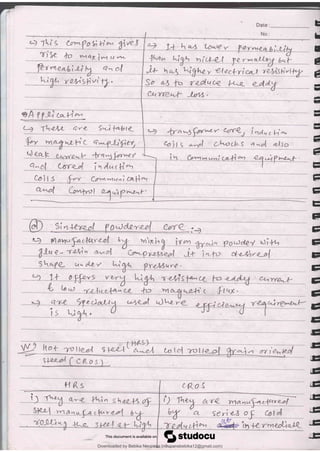 Date:
No:
↳ This composition gives
rise to maximum
permeability and
high resistivity.
↳ It has lower permeability
than high nickel permalloy but
it has higher electrical resistivity
so as to reduce the eddy
current loss.
⊗ Application
↳ These are suitable
for magnetic amplifier,
weak current transformer
and cored inductor
coils for communication
and control equipment
↳ transformer core, induction
coils and chocks and also
in communication equipment
(d) Sintered powdered core :→
↳ manufactured by mixing iron grain powder with
glue-resin and compressed it into desired
shape under high pressure.
↳ It offers very high resistance to eddy current
& low reluctance to magnetic flux.
↳ are specially used where efficiency requirement
is high.
Hot rolled steel (HRS) and cold rolled grain oriented
steel (CROS)
HRS
CROS
i) They are thin sheets of
steel manufactured by
rolling the steel at high
i) They are manufactured
by a series of cold
reduction intermediate
This document is available on
studocu